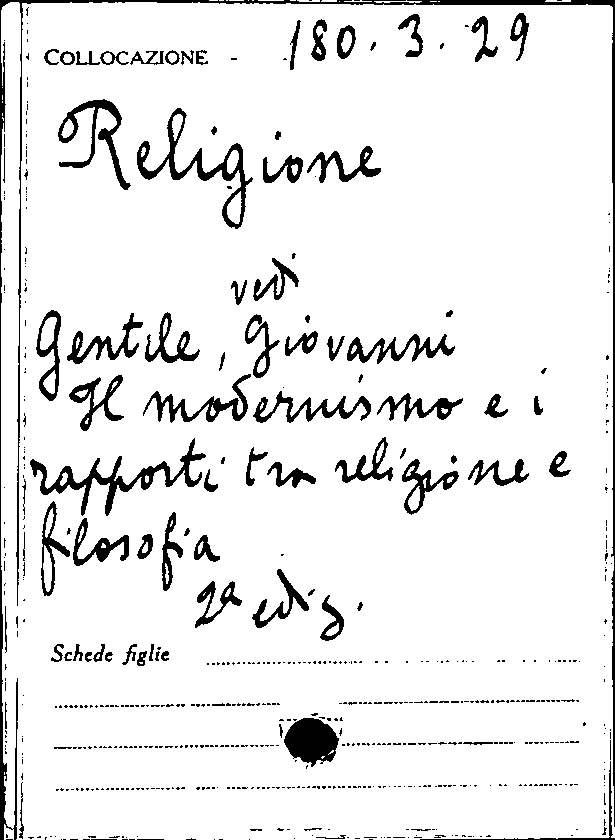 COLLOCAZIONE - 180.3.29
Religione
vedi
Gentile, Giovanni
Il modernismo e i
rapporti tra religione e
filosofia
2ª ediz.
Schede figlie